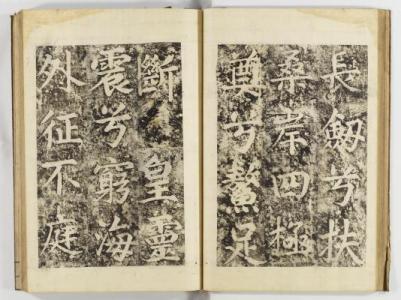 長劔兮扶
桒岸四極
奠兮鼇足
斷皇靈
震兮窮海
外征不庭